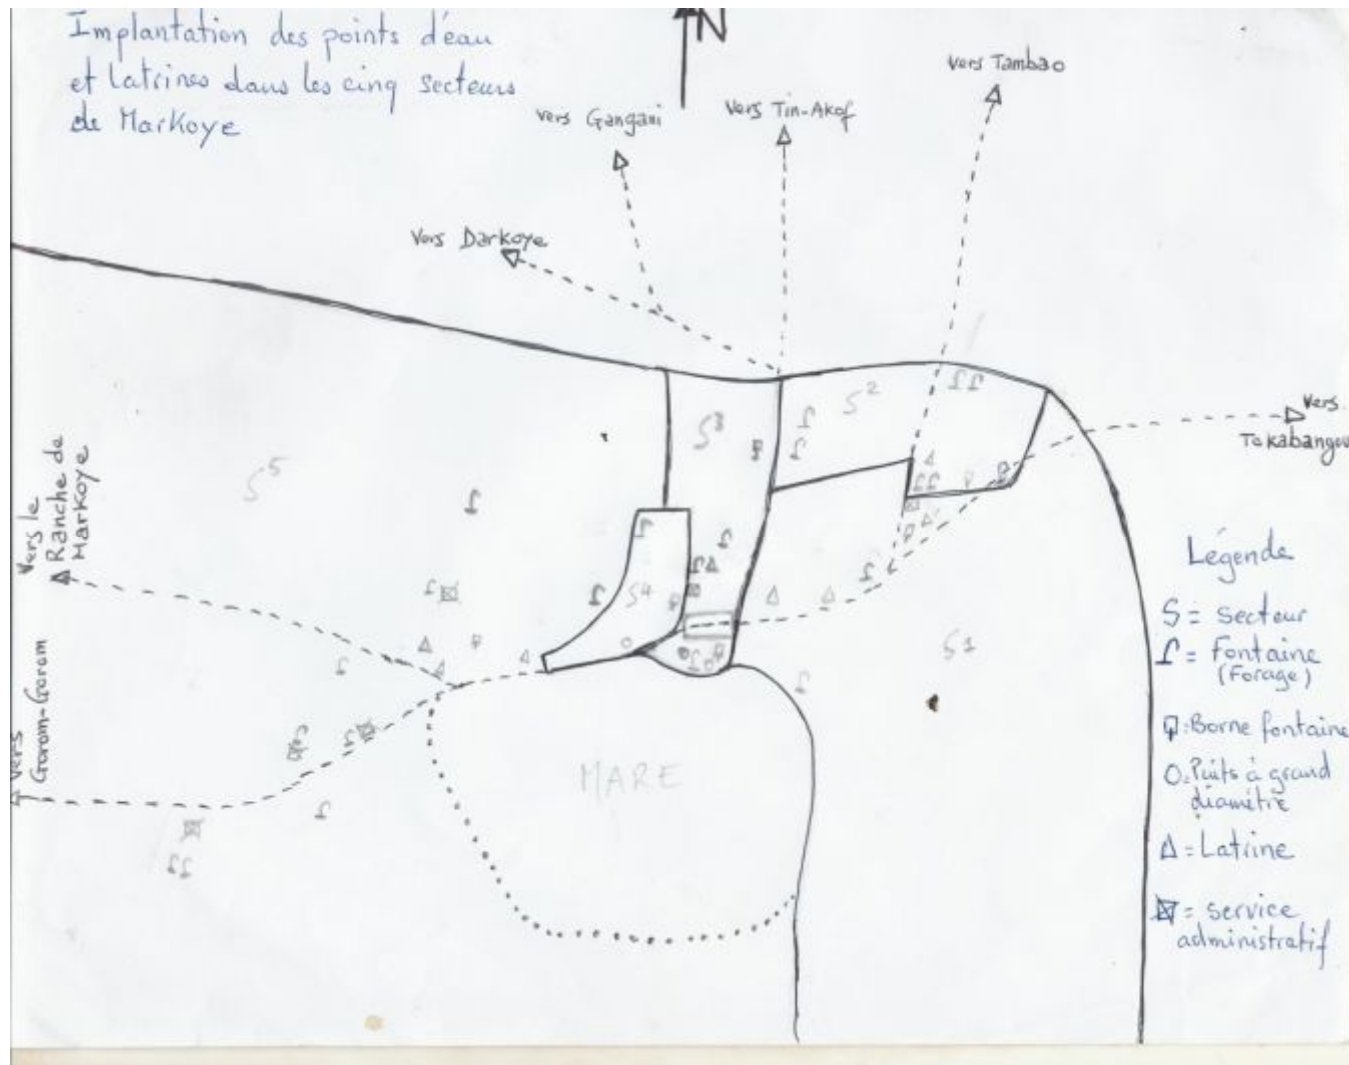 Implantation des points d'eau
et Latrines dans les cinq secteurs
de Markoye
N
vers Tambao
vers Gangani
vers Tin-Akof
vers Darkoye
vers
Tokabangou
S2
S3
S5
S4
S1
vers le
Ranche de
Markoye
vers
Gorom-Gorom
MARE
Légende
S = Secteur
= Fontaine
(Forage)
: Borne fontaine
: Puits à grand
diamètre
= Latrine
= service
administratif